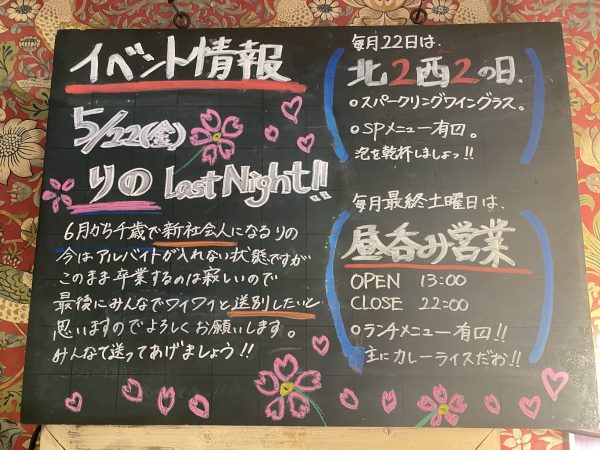 イベント情報
5/22(金)
りの Last Night!!
6月から千歳で新社会人になるりの
今はアルバイトが入れない状態ですが
このまま卒業するのは寂しいので
最後にみんなでワイワイと送別したいと
思いますのでよろしくお願いします。
みんなで送ってあげましょう!!
毎月22日は、
北2西2の日、
○スパークリングワイングラス。
○SPメニュー有回。
泡を乾杯しましょっ!!
毎月最終土曜日は、
昼呑み営業
OPEN 13:00
CLOSE 22:00
○ランチメニュー有回!!
主にカレーライスだお!!